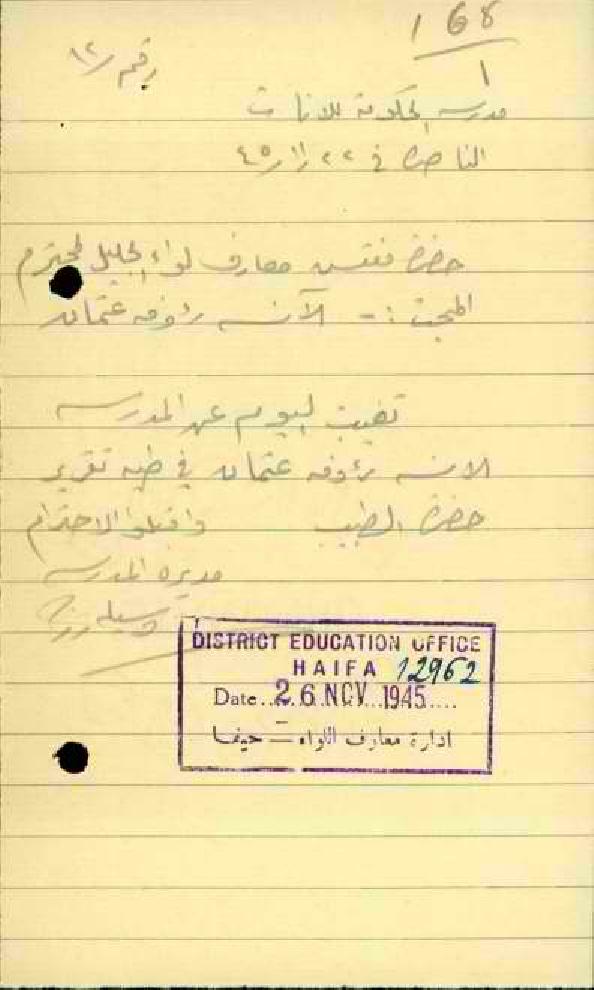 168
1
رقم ١٢/
مدرسة الحكومة للاناث
الناصرة في ٢٢/١١/٤٥
حضرة مفتش معارف لواء الجليل المحترم
المبحث :- الآنسه رؤوفه عثمان
تغيبت اليوم عن المدرسه
الانسه رؤوفه عثمان في طيه تقرير
حضرة الطبيب وا قبلوا الاحترام
مديرة المدرسه
DISTRICT EDUCATION OFFICE
HAIFA 12962
Date 26 NOV 1945
ادارة معارف اللواء – حيفا